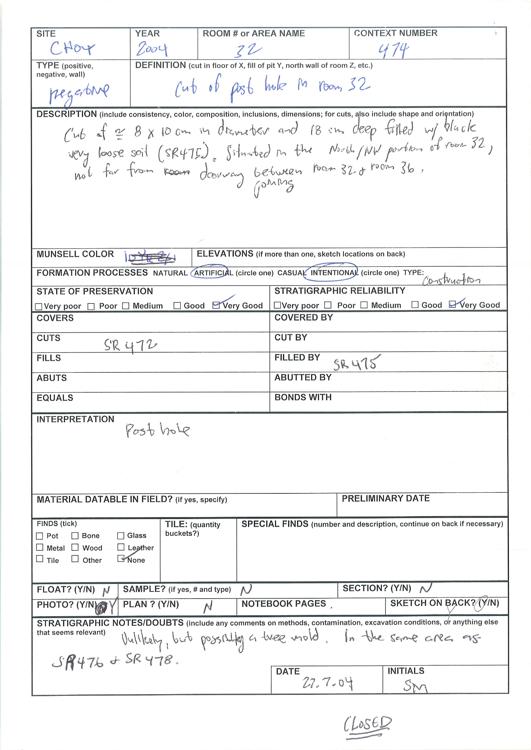 SITE YEAR ROOM # or AREA NAME CONTEXT NUMBER
CHOY 2004 32 474
TYPE (positive, negative, wall) DEFINITION (cut in floor of X, fill of pit Y, north wall of room Z, etc.)
negative Cut of post hole in room 32
DESCRIPTION (include consistency, color, composition, inclusions, dimensions; for cuts, also include shape and orientation)
Cut of ≅ 8 x 10 cm in diameter and 18 cm deep filled w/ black
very loose soil (SR475). Situated in the North/NW portion of room 32,
not far from doorway between room 32 & room 36.
joining
MUNSELL COLOR ELEVATIONS (if more than one, sketch locations on back)
FORMATION PROCESSES NATURAL ARTIFICIAL (circle one) CASUAL INTENTIONAL (circle one) TYPE: Construction
STATE OF PRESERVATION STRATIGRAPHIC RELIABILITY
Very poor Poor Medium Good Very Good Very poor Poor Medium Good Very Good
COVERS COVERED BY
CUTS SR 472 CUT BY
FILLS FILLED BY SR 475
ABUTS ABUTTED BY
EQUALS BONDS WITH
INTERPRETATION
Post hole
MATERIAL DATABLE IN FIELD? (if yes, specify) PRELIMINARY DATE
FINDS (tick) TILE: (quantity buckets?) SPECIAL FINDS (number and description, continue on back if necessary)
Pot Bone Glass
Metal Wood Leather
Tile Other None
FLOAT? (Y/N) N SAMPLE? (if yes, # and type) N SECTION? (Y/N) N
PHOTO? (Y/N) Y PLAN ? (Y/N) N NOTEBOOK PAGES SKETCH ON BACK? (Y/N)
STRATIGRAPHIC NOTES/DOUBTS (include any comments on methods, contamination, excavation conditions, or anything else
that seems relevant) Unlikely, but possibly a tree mold. In the same area as
SR476 & SR 478.
DATE INITIALS
27.7.04 SM
CLOSED